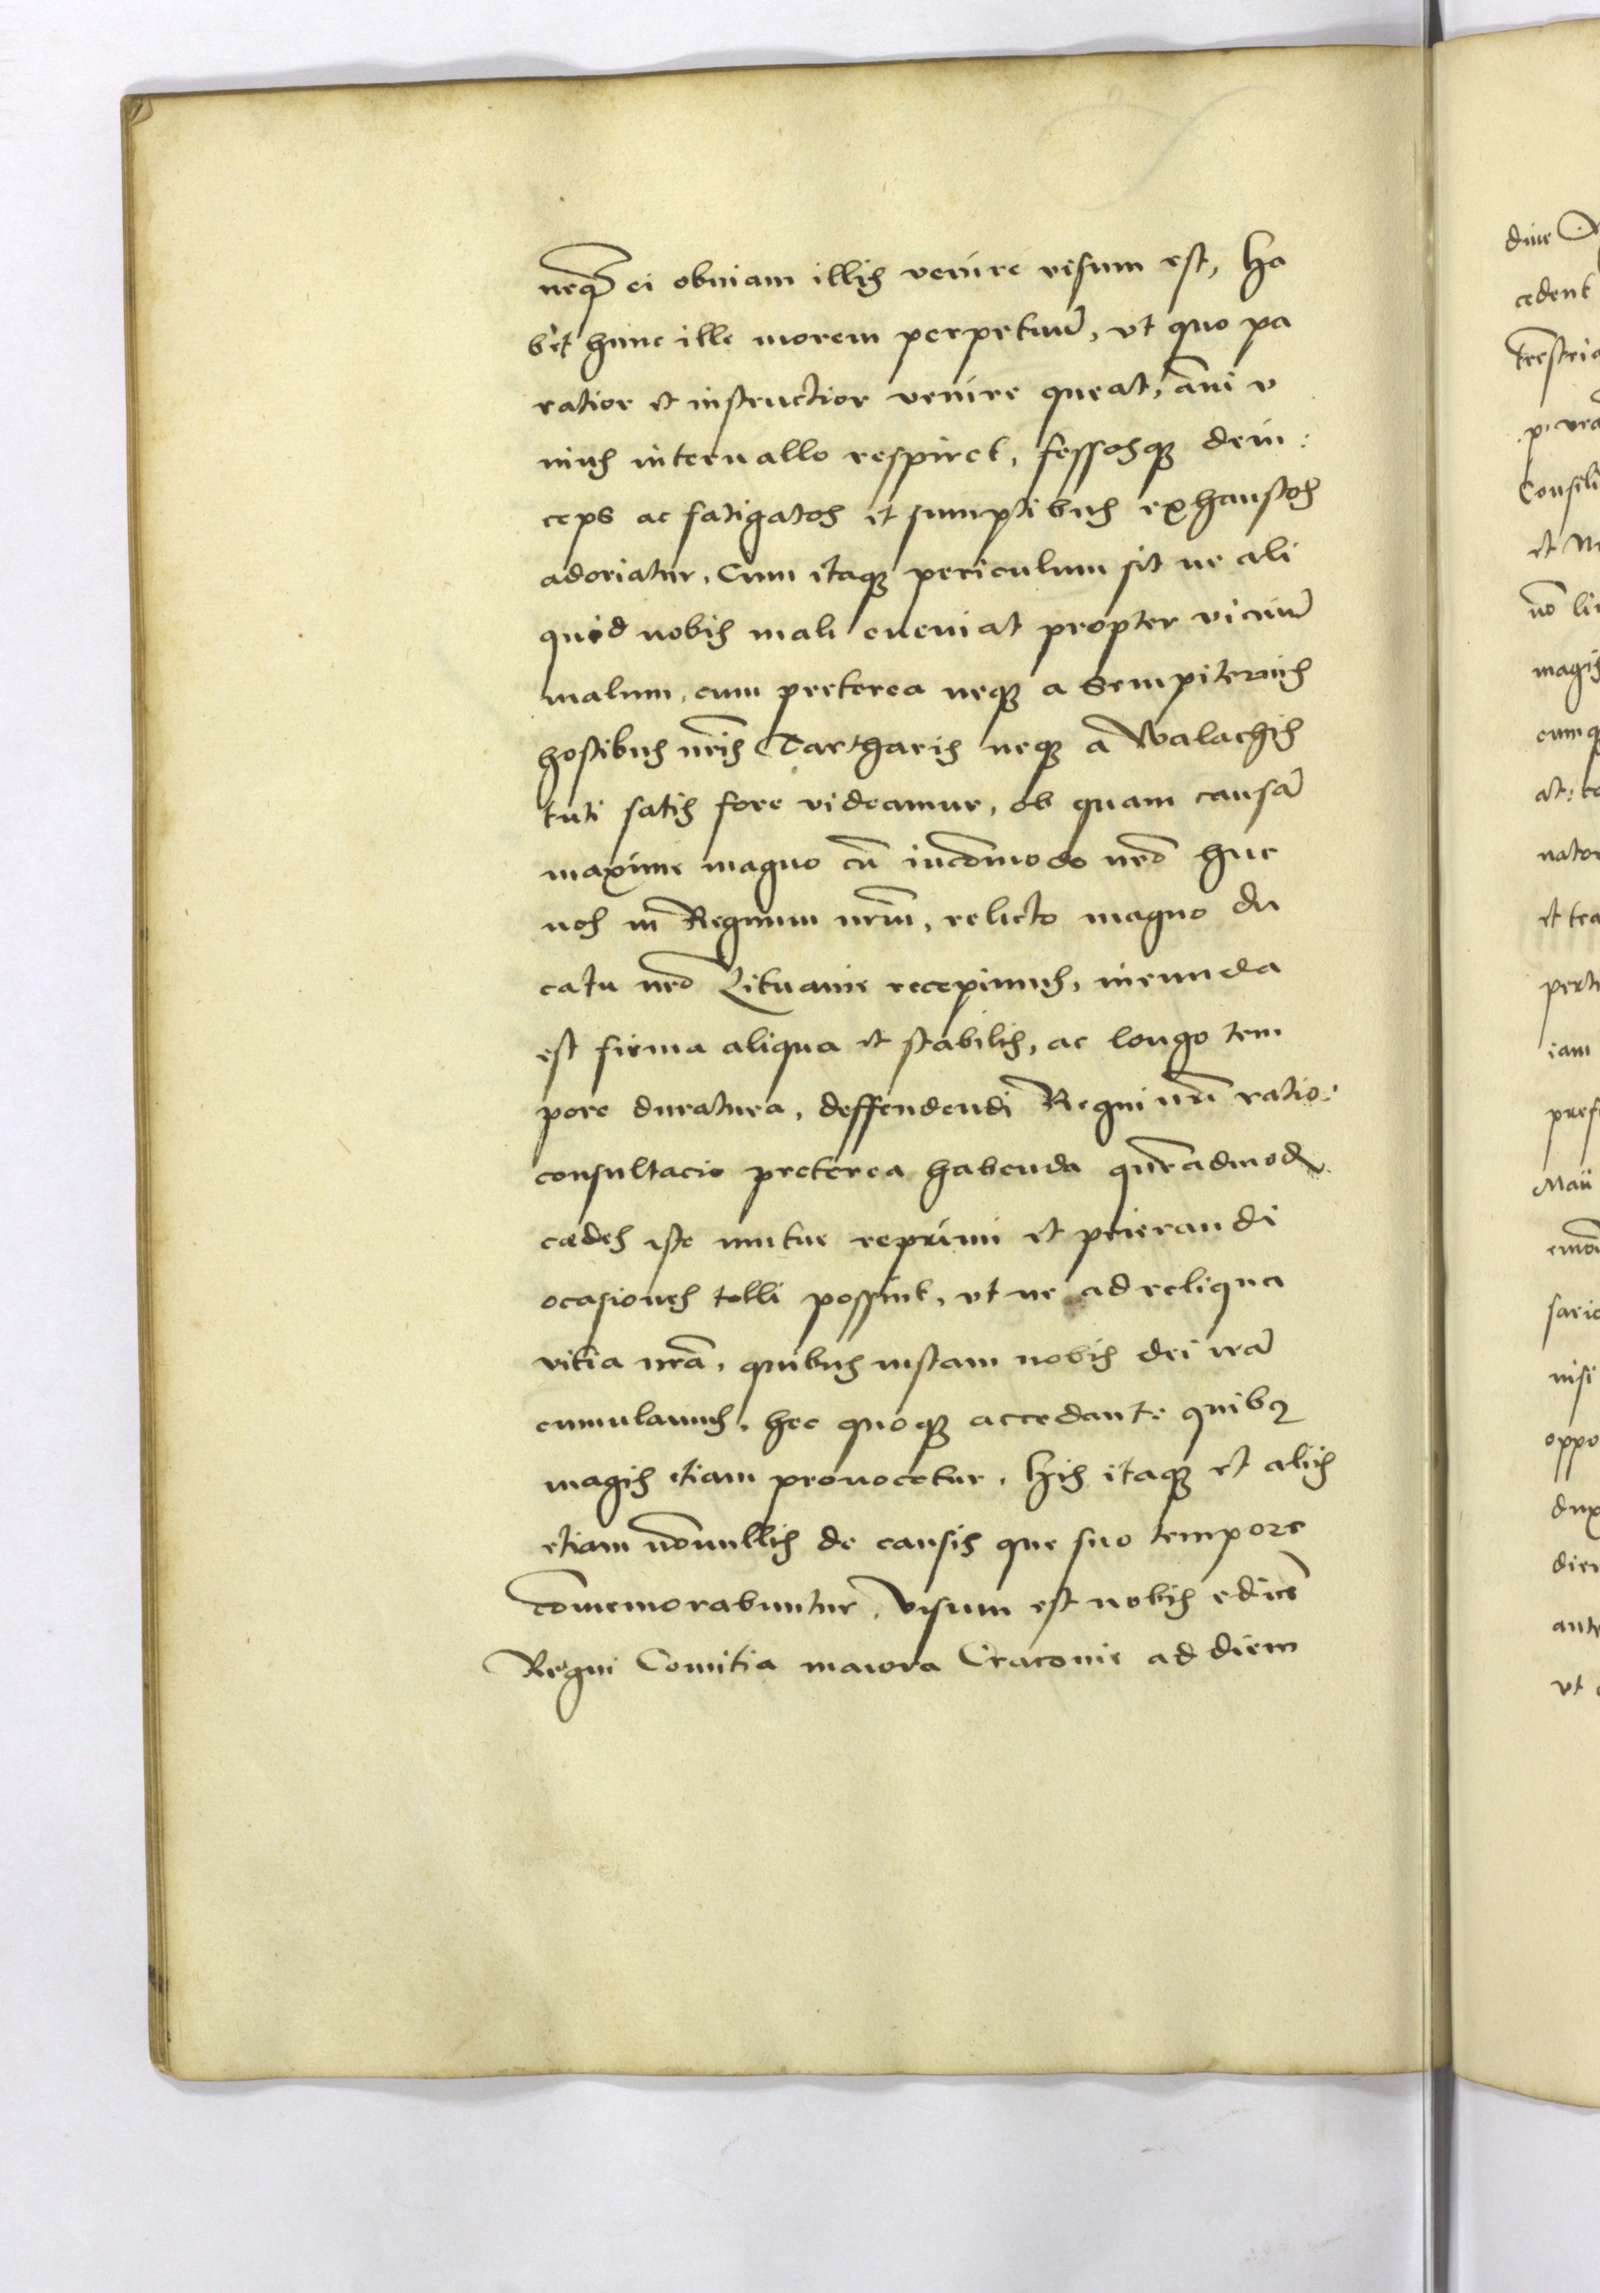 neqȝ ei obuiam illis venire visum est, Ha
bet hunc ille morem perpetuū, vt quo pa
ratior et instructior venire queat, āni v
nius interuallo respiret, fessosqȝ dein:
ceps ac fatigatos et sumptibus exhaustos
adoriatur, Cum itaqȝ periculum sit ne ali
quid nobis mali eueniat propter vicinū
malum, cum preterea neqȝ a Sempiternis
hostibus nr̄is Tartharis neqȝ a Walachis
tuti satis fore videamur, ob quam causā
maxime magno cū incōmodo nr̄o huc
nos in Regnum nr̄m, relicto magno du
catu nr̄o Lituanie recepimus, ineunda
est firma aliqua et stabilis, ac longo tem
pore duratura, deffendendi Regni nr̄i ratio:
consultacio preterea habenda quēadmodū
cædes iste mutue reprimi et peierandi
ocasiones tolli possint, vt ne ad reliqua
vitia nr̄a, quibus iustam nobis dei irā
cumulamus, hec quoqȝ accedant quibꝰ
magis etiam prouocetur, His itaqȝ et aliis
etiam nōnullis de causis que suo tempore
cōmemorabuntur, Visum est nobis edicē
Regni Comitia maiora Cracouie ad diem
diue
cedent
terrestri
p. vr̄a
Consili
et
nō li
magis
cumqȝ
at:
nator
et tra
pert
iam
pref
Maii
emō
sario
nisi
oppo
dux
dier
ante
vt